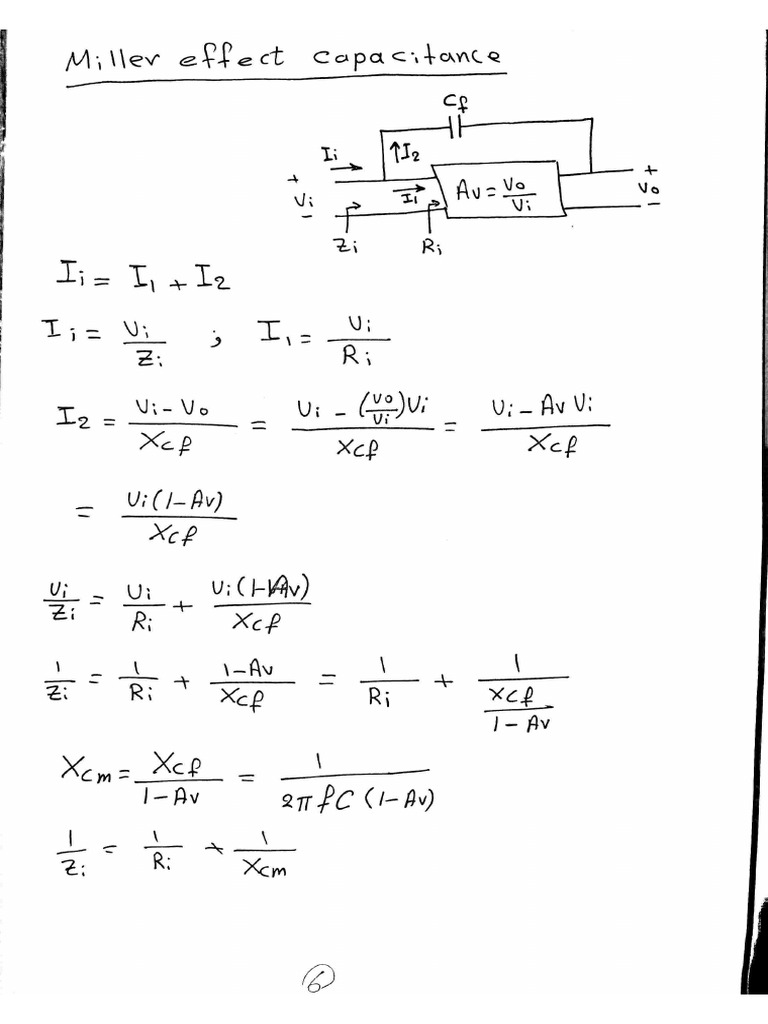 Miller effect capacitance
Cf
Ii
↑I2
+
Vi
−
I1
Av = Vo/Vi
+
Vo
−
Zi
Ri
Ii = I1 + I2
Ii = Vi/Zi ; I1 = Vi/Ri
I2 = (Vi − Vo)/Xcf = (Vi − (Vo/Vi)Vi)/Xcf = (Vi − Av Vi)/Xcf
= Vi(1−Av)/Xcf
Vi/Zi = Vi/Ri + Vi(1−Av)/Xcf
1/Zi = 1/Ri + (1−Av)/Xcf = 1/Ri + 1/(Xcf/(1−Av))
Xcm = Xcf/(1−Av) = 1/(2πfC(1−Av))
1/Zi = 1/Ri + 1/Xcm
6